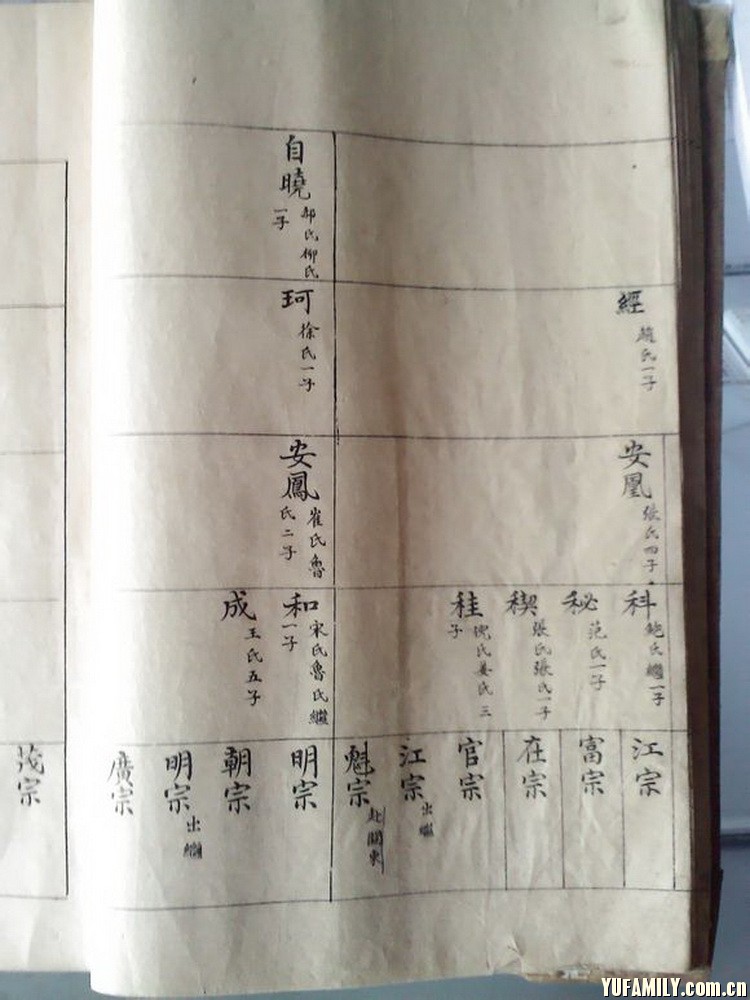 經
趙氏一子
安凰
張氏四子
科
鮑氏繼一子
秘
范氏一子
稧
張氏張氏一子
䅅
隗氏姜氏三
子
江宗
富宗
在宗
官宗
江宗
出繼
魁宗
赴關東
自曉
郝氏柳氏
一子
珂
徐氏一子
安鳳
崔氏魯
氏二子
和
宋氏魯氏繼
一子
成
王氏五子
明宗
朝宗
明宗
出繼
廣宗
茂宗
YUFAMILY.com.cn